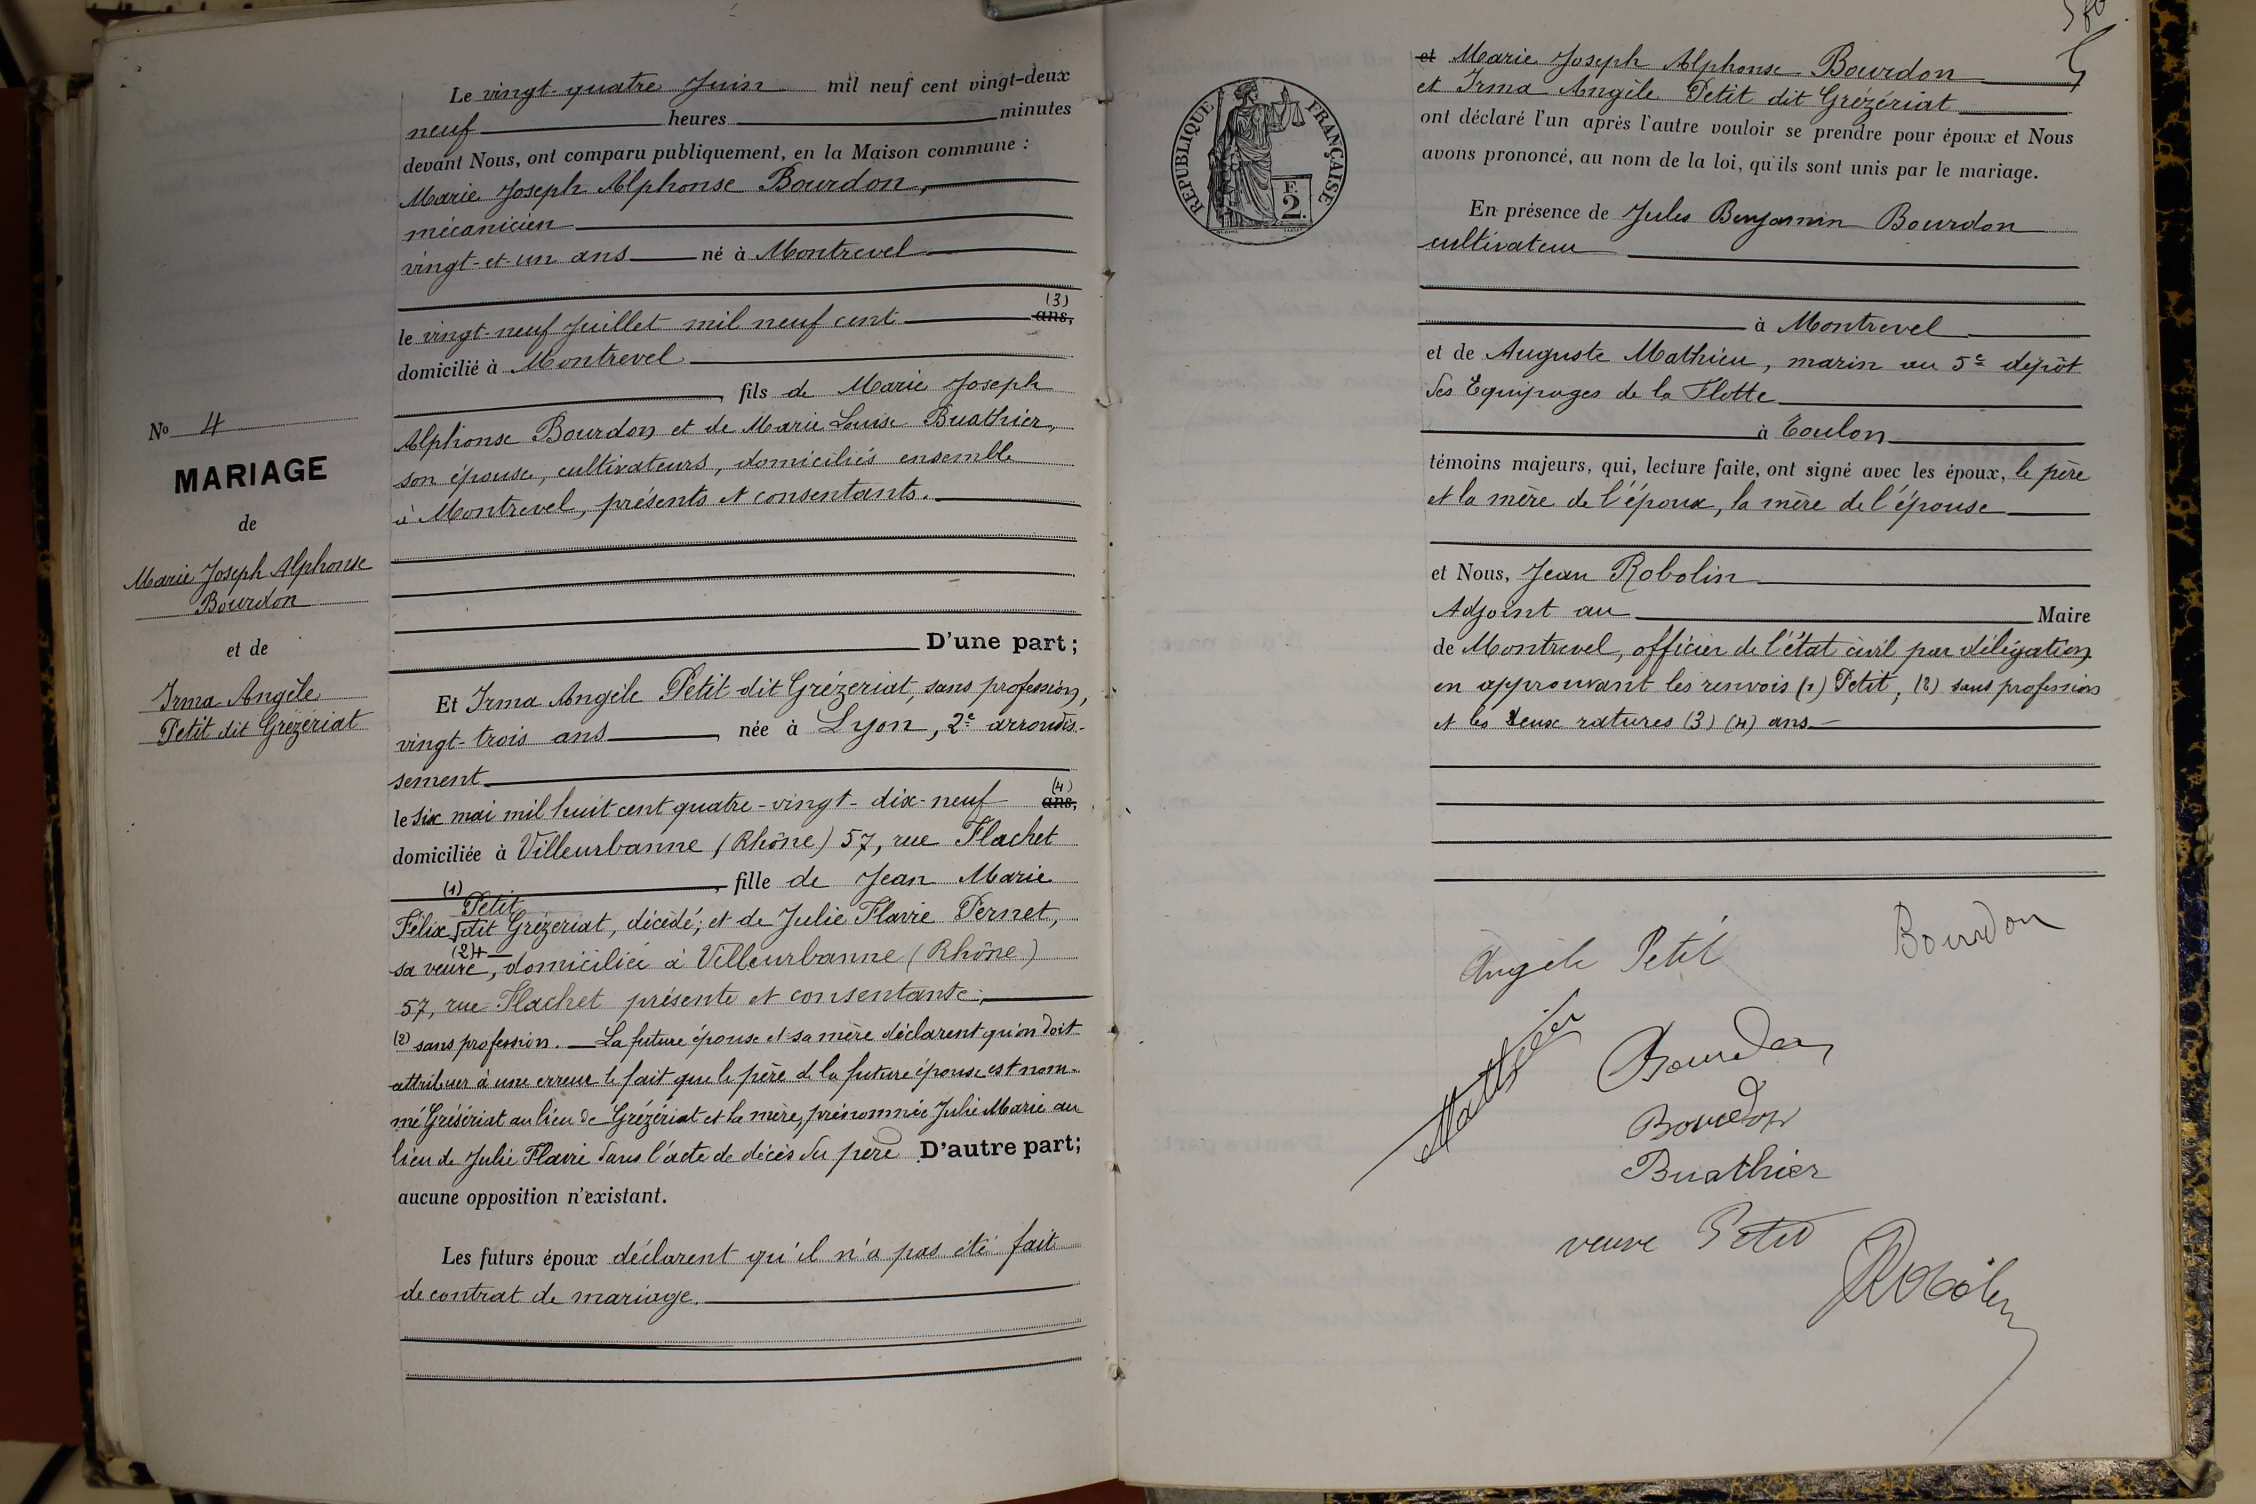 Le vingt-quatre Juin mil neuf cent vingt-deux
neuf heures minutes
devant Nous, ont comparu publiquement, en la Maison commune :
Marie Joseph Alphonse Bourdon,
mécanicien
vingt-et-un ans né à Montrevel
(3)
le vingt-neuf Juillet mil neuf cent ans,
domicilié à Montrevel
, fils de Marie Joseph
Alphonse Bourdon et de Marie Louise Buathier,
son épouse, cultivateurs, domiciliés ensemble
à Montrevel, présents et consentants.
D'une part ;
No 4
MARIAGE
de
Marie Joseph Alphonse
Bourdon
et de
Irma Angèle
Petit dit Grézériat
Et Irma Angèle Petit dit Grézériat, sans profession,
vingt-trois ans, née à Lyon, 2e arrondis-
sement
(4)
le six mai mil huit cent quatre-vingt-dix-neuf ans,
domiciliée à Villeurbanne (Rhône) 57, rue Flachet
, fille de Jean Marie
(1) Petit
Félix dit Grézériat, décédé; et de Julie Flavie Pernet,
(2)
sa veuve, domiciliée à Villeurbanne (Rhône)
57, rue Flachet présente et consentante.
(2) sans profession. — La future épouse et sa mère déclarent qu'on doit
attribuer à une erreur le fait que le père d la future épouse est nom-
mé Grésériat au lieu de Grézériat et la mère, prénommée Julie Marie au
lieu de Julie Flavie dans l'acte de décès du père D'autre part;
aucune opposition n'existant.
Les futurs époux déclarent qu'il n'a pas été fait
de contrat de mariage.
REPUBLIQUE FRANÇAISE
F.
2.
et Marie Joseph Alphonse Bourdon
et Irma Angèle Petit dit Grézériat
ont déclaré l'un après l'autre vouloir se prendre pour époux et Nous
avons prononcé, au nom de la loi, qu'ils sont unis par le mariage.
En présence de Jules Benjamin Bourdon
cultivateur
à Montrevel
et de Auguste Mathieu, marin au 5e dépôt
des Equipages de la Flotte
à Toulon
témoins majeurs, qui, lecture faite, ont signé avec les époux, le père
et la mère de l'époux, la mère de l'épouse
et Nous, Jean Robolin
Adjoint au Maire
de Montrevel, officier de l'état civil par délégation
en approuvant les renvois (1) Petit, (2) sans profession
et les deux ratures (3) (4) ans —
Angèle Petit
Bourdon
Bourdon
Bourdon
Buathier
veuve Petit
Robolin